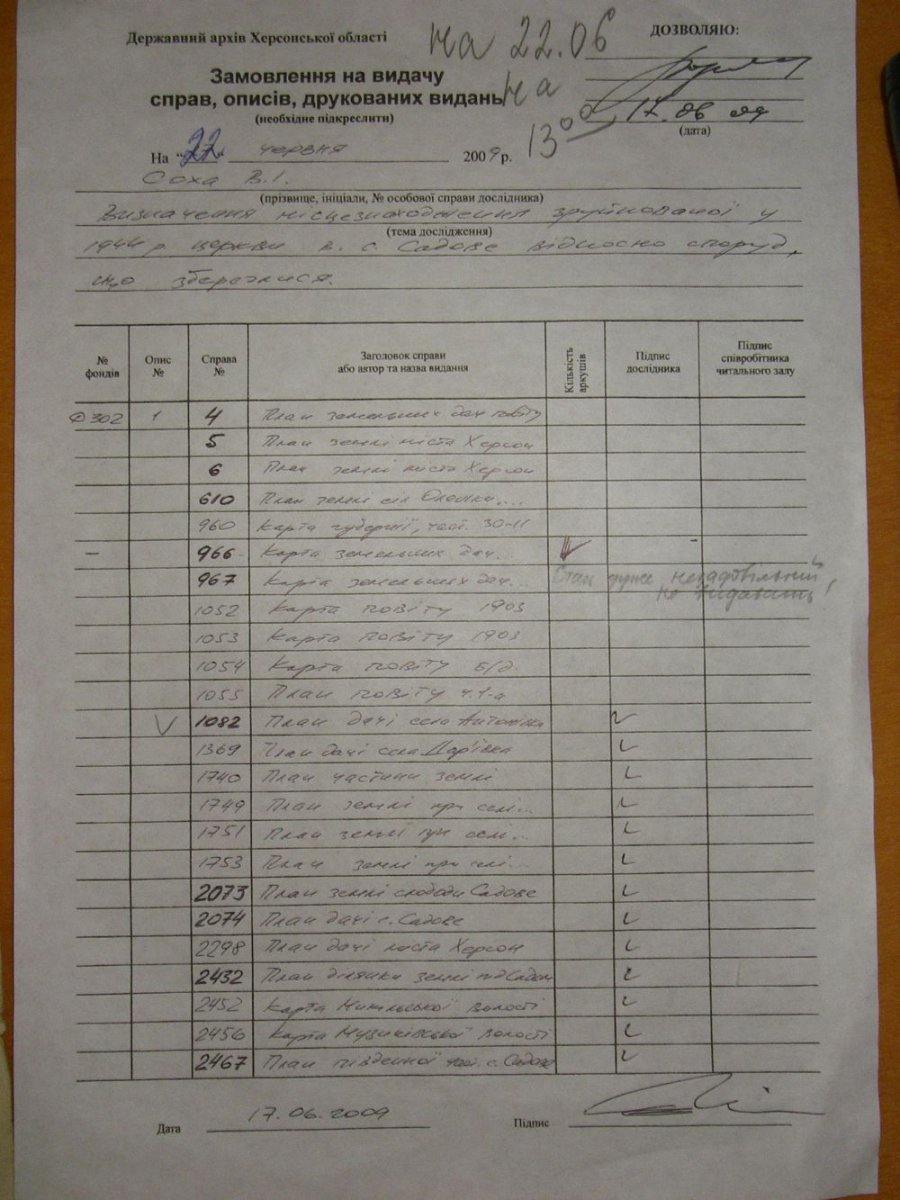 Державний архів Херсонської області
на 22.06
ДОЗВОЛЯЮ:
Замовлення на видачу
справ, описів, друкованих видань
(необхідне підкреслити)
на
13⁰⁰
17.06 09
(дата)
На "22" червня 2009 р.
Соха В.І.
(прізвище, ініціали, № особової справи дослідника)
Визначення місцезнаходження зруйнованої у
(тема дослідження)
1944 р. церкви в с. Садове відносно споруд,
що збереглися.
№ фондів Опис № Справа № Заголовок справи або автор та назва видання Кількість аркушів Підпис дослідника Підпис співробітника читального залу
Ф302 1 4 План земельних дач повіту
5 План землі міста Херсон
6 План землі міста Херсон
610 План землі сіл Олешки....
960 Карта губернії, част. 30-11
— 966 Карта земельних дач...
967 Карта земельних дач... Стан дуже незадовільний, не видавать!
1052 Карта повіту 1903
1053 Карта повіту 1903
1054 Карта повіту б/д.
1055 План повіту ч.1-а
V 1082 План дачі села Антонівка
1369 План дачі села Дар'ївка
1740 План частини землі
1749 План землі при селі...
1751 План землі при селі...
1753 План землі при селі...
2073 План землі слободи Садове
2074 План дачі с. Садове
2298 План дачі міста Херсон
2432 План ділянки землі під Садом
2452 Карта волості
2456 Карта Музиківської волості
2467 План південної част. с. Садове
Дата 17.06.2009 Підпис